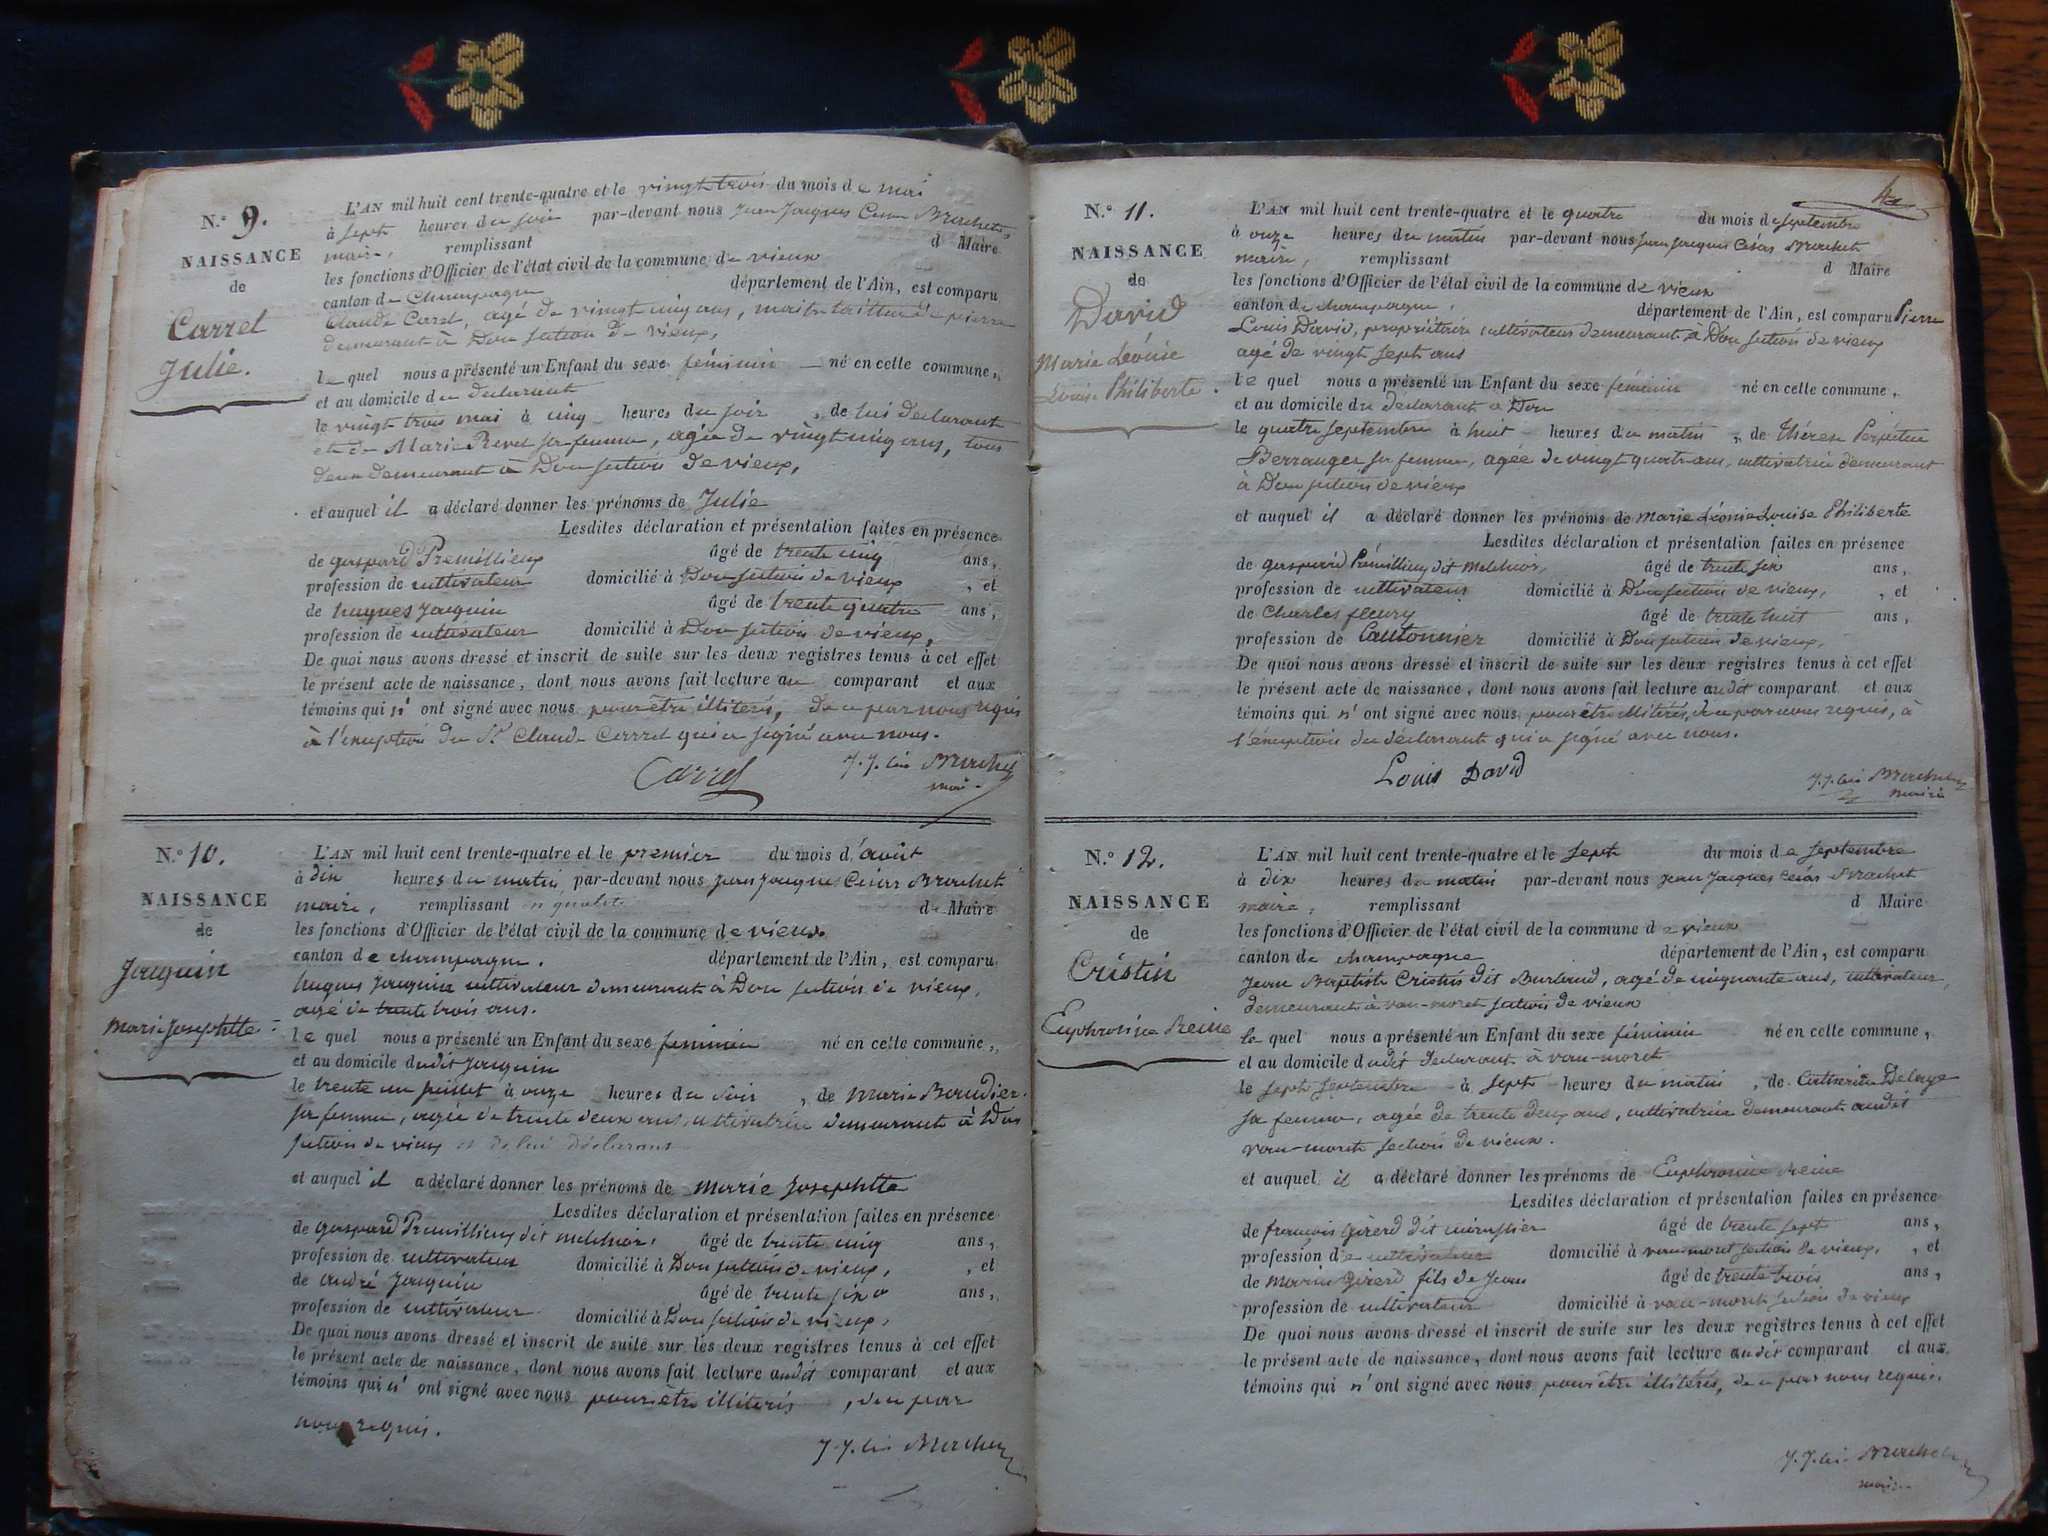 N.o 9.
NAISSANCE
de
Carret
Julie.
L'AN mil huit cent trente-quatre et le vingt trois du mois de mai
à sept heures du soir par-devant nous Jean Jacques César Brachet,
maire, remplissant d Maire
les fonctions d'Officier de l'état civil de la commune de vieux
canton de Champagne département de l'Ain, est comparu
Claude Carret, agé de vingt cinq ans, de pierre
demeurant à Don section de vieux,
le quel nous a présenté un Enfant du sexe féminin né en celle commune,
et au domicile du déclarant
le vingt trois mai à cinq heures du soir, de lui déclarant
et de Marie Revel sa femme, agée de vingt cinq ans, tous
deux demeurant à Don section de vieux,
et auquel il a déclaré donner les prénoms de Julie
Lesdites déclaration et présentation faites en présence
de gaspard Premillieux âgé de trente cinq ans,
profession de cultivateur domicilié à Don section de vieux, et
de hugues Jacquin âgé de trente quatre ans,
profession de cultivateur domicilié à Don section de vieux,
De quoi nous avons dressé et inscrit de suite sur les deux registres tenus à cet effet
le présent acte de naissance, dont nous avons fait lecture au comparant et aux
témoins qui n'ont signé avec nous pour être illitérés, de ce par nous requis
à l'exception du Sr Claude Carret qui a signé avec nous.
Carret
J. J. César Brachet
maire
N.o 10.
NAISSANCE
de
Jacquin
Marie Josephtte
L'AN mil huit cent trente-quatre et le premier du mois d'août
à dix heures du matin, par-devant nous Jean Jacques César Brachet
maire, remplissant de Maire
les fonctions d'Officier de l'état civil de la commune de vieux
canton de champagne. département de l'Ain, est comparu
hugues Jacquin cultivateur demeurant à Don section de vieux,
agé de trente trois ans.
le quel nous a présenté un Enfant du sexe féminin né en celle commune,
et au domicile dudit Jacquin
le trente un juillet à onze heures du soir, de Marie Baudier
sa femme, agée de trente deux ans, cultivatrice demeurante à Don
section de vieux et de lui déclarant
et auquel il a déclaré donner les prénoms de Marie Josephtte
Lesdites déclaration et présentation faites en présence
de gaspard Premillieux dit melchior, âgé de trente cinq ans,
profession de cultivateur domicilié à Don section de vieux, et
de andré Jacquin âgé de trente six ans,
profession de cultivateur domicilié à Don section de vieux,
De quoi nous avons dressé et inscrit de suite sur les deux registres tenus à cet effet
le présent acte de naissance, dont nous avons fait lecture audit comparant et aux
témoins qui n'ont signé avec nous pour être illitérés, de ce par
nous requis.
J. J. César Brachet
N.o 11.
NAISSANCE
de
David
Marie Léonie
Louise Philiberte.
L'AN mil huit cent trente-quatre et le quatre du mois de septembre
à onze heures du matin par-devant nous Jean Jacques César Brachet
maire, remplissant d Maire
les fonctions d'Officier de l'état civil de la commune de vieux
canton de champagne. département de l'Ain, est comparu Pierre
Louis David, propriétaire cultivateur demeurant à Don section de vieux
agé de vingt sept ans
le quel nous a présenté un Enfant du sexe féminin né en celle commune,
et au domicile du déclarant à Don
le quatre septembre à huit heures du matin, de thérèse Perpétue
Berranger sa femme, agée de vingt quatre ans, cultivatrice demeurant
à Don section de vieux
et auquel il a déclaré donner les prénoms de Marie Léonie Louise Philiberte
Lesdites déclaration et présentation faites en présence
de gaspard Prémillieux dit Melchior, âgé de trente six ans,
profession de cultivateur domicilié à Don section de vieux, et
de Charles fleury âgé de trente huit ans,
profession de Cantonnier domicilié à Don section de vieux.
De quoi nous avons dressé et inscrit de suite sur les deux registres tenus à cet effet
le présent acte de naissance, dont nous avons fait lecture audit comparant et aux
témoins qui n'ont signé avec nous pour être illitérés, de ce par nous requis, à
l'éxception du déclarant qui a signé avec nous.
Louis David
J. J. César Brachet
maire
N.o 12.
NAISSANCE
de
Cristin
Euphrosine Reine
L'AN mil huit cent trente-quatre et le sept du mois de septembre
à dix heures du matin par-devant nous Jean Jacques César Brachet
maire, remplissant d Maire
les fonctions d'Officier de l'état civil de la commune de vieux
canton de champagne département de l'Ain, est comparu
Jean Baptiste Cristin dit Burland, agé de cinquante ans, cultivateur,
demeurant à vau-moret section de vieux
le quel nous a présenté un Enfant du sexe féminin né en celle commune,
et au domicile dudit déclarant à vau-moret
le sept septembre à sept heures du matin, de Catherine Delaye
sa femme, agée de trente deux ans, cultivatrice demeurant audit
vau-moret section de vieux.
et auquel il a déclaré donner les prénoms de Euphrosine Reine
Lesdites déclaration et présentation faites en présence
de francois Girerd dit âgé de trente sept ans,
profession de cultivateur domicilié à vau-moret section de vieux, et
de Marin Girerd fils de Jean âgé de trente trois ans,
profession de cultivateur domicilié à vau-moret section de vieux
De quoi nous avons dressé et inscrit de suite sur les deux registres tenus à cet effet
le présent acte de naissance, dont nous avons fait lecture audit comparant et aux
témoins qui n'ont signé avec nous pour être illitérés, de ce par nous requis.
J. J. César Brachet
maire